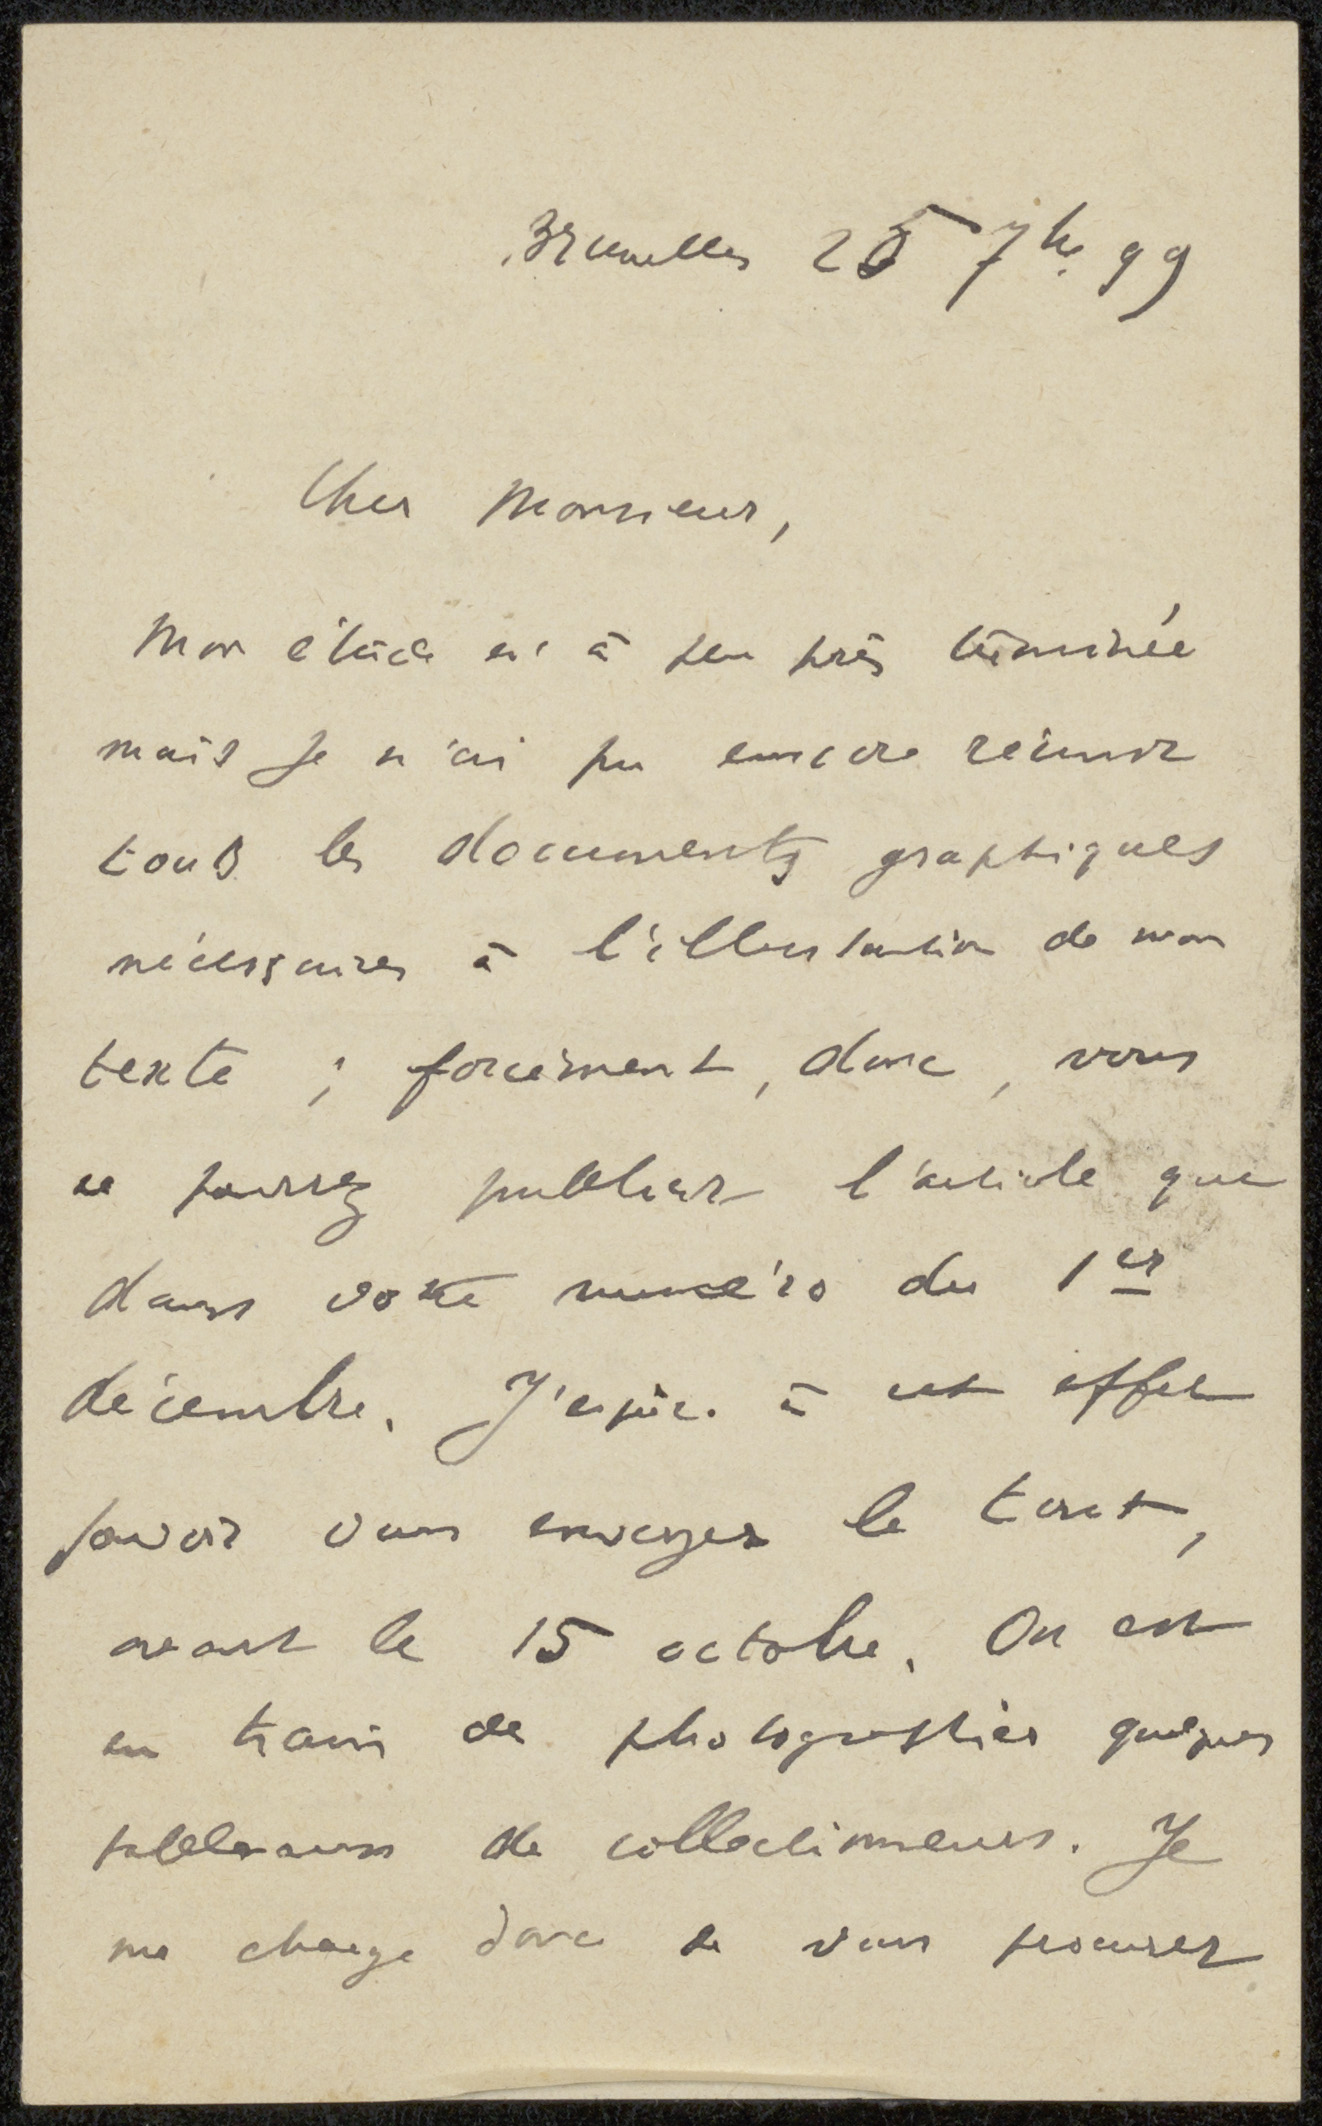 Bruxelles 25 7bre 99
Cher Monsieur,
Mon étude est à peu près terminée
mais je n'ai pu encore réunir
tous les documents graphiques
nécessaires à l'illustration de mon
texte ; forcément, donc, vous
ne pourrez publier l'article que
dans votre numéro du 1er
décembre. J'espère à cet effet
pouvoir vous envoyer le tout,
avant le 15 octobre. On est
en train de photographier quelques
tableaux de collectionneurs. Je
me charge donc de vous procurer